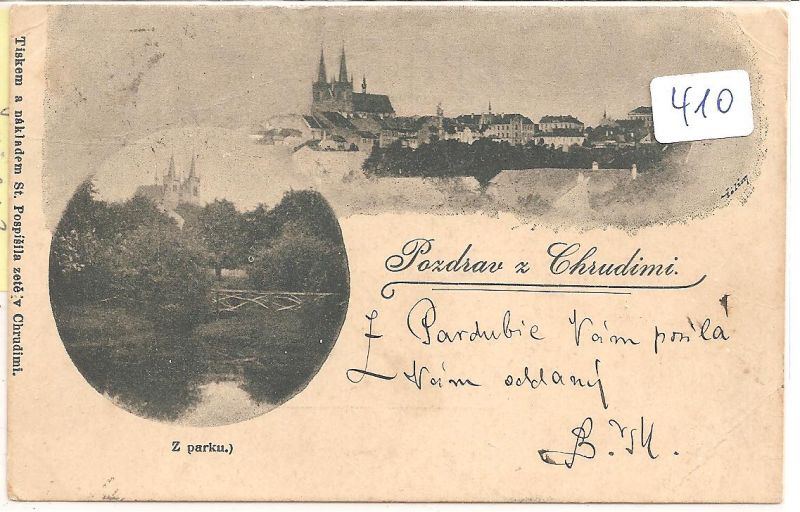 Tiskem a nákladem St. Pospíšila zetě v Chrudimi.
410
Pozdrav z Chrudimi.
Z Pardubic Vám posílá
Vám oddaný
Z parku.)